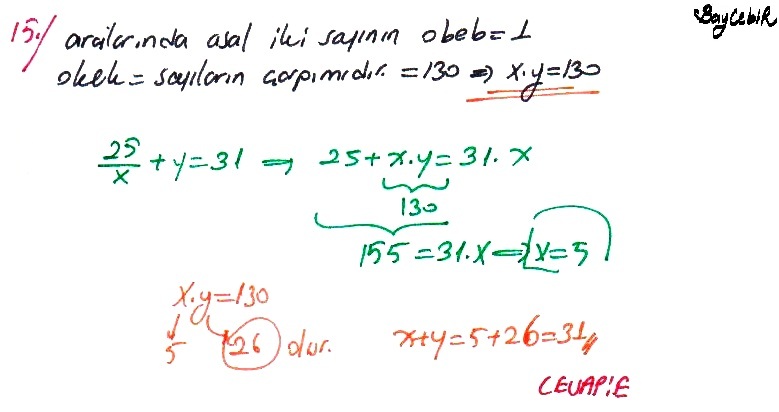 BayCebiR
15./ aralarında asal iki sayının obeb=1
okek= sayıların çarpımıdır. =130 ⇒ x.y=130
25/x + y=31 ⇒ 25+x.y=31.x
130
155=31.x ⇒ x=5
x.y=130
5 26 dır. x+y=5+26=31//
CEVAP:E